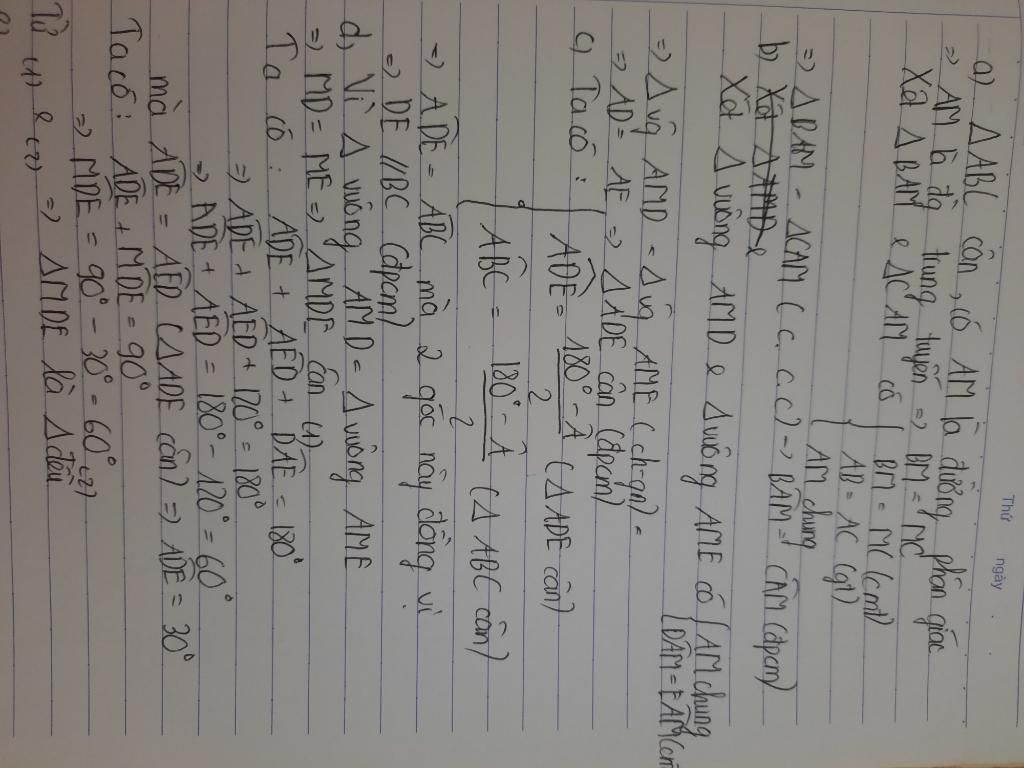 Thứ ngày
a) ΔABC cân, có AM là đường phân giác
=> AM là đg trung tuyến => BM = MC
Xét ΔBAM & ΔCAM có { BM = MC (cmt)
AB = AC (gt)
AM chung
=> ΔBAM = ΔCAM (c.c.c) => BÂM = CÂM (đpcm)
b) Xét ΔAMD &
Xét Δ vuông AMD & Δ vuông AME có { AM chung
DÂM = EÂM (cm
=> Δ vg AMD = Δ vg AME (ch-gn) =
=> AD = AE => ΔADE cân (đpcm)
c) Ta có : { ADE = 180° - Â / 2 (ΔADE cân)
ABC = 180° - Â / 2 (ΔABC cân)
=> ADE = ABC mà 2 góc này đồng vị
=> DE // BC (đpcm)
d, Vì Δ vuông AMD = Δ vuông AME
=> MD = ME => ΔMDE cân (1)
Ta có : ADE + AED + DAE = 180°
=> ADE + AED + 120° = 180°
=> ADE + AED = 180° - 120° = 60°
mà ADE = AED (ΔADE cân) => ADE = 30°
Ta có : ADE + MDE = 90°
=> MDE = 90° - 30° = 60° (2)
Từ (1) & (2) => ΔMDE là Δ đều